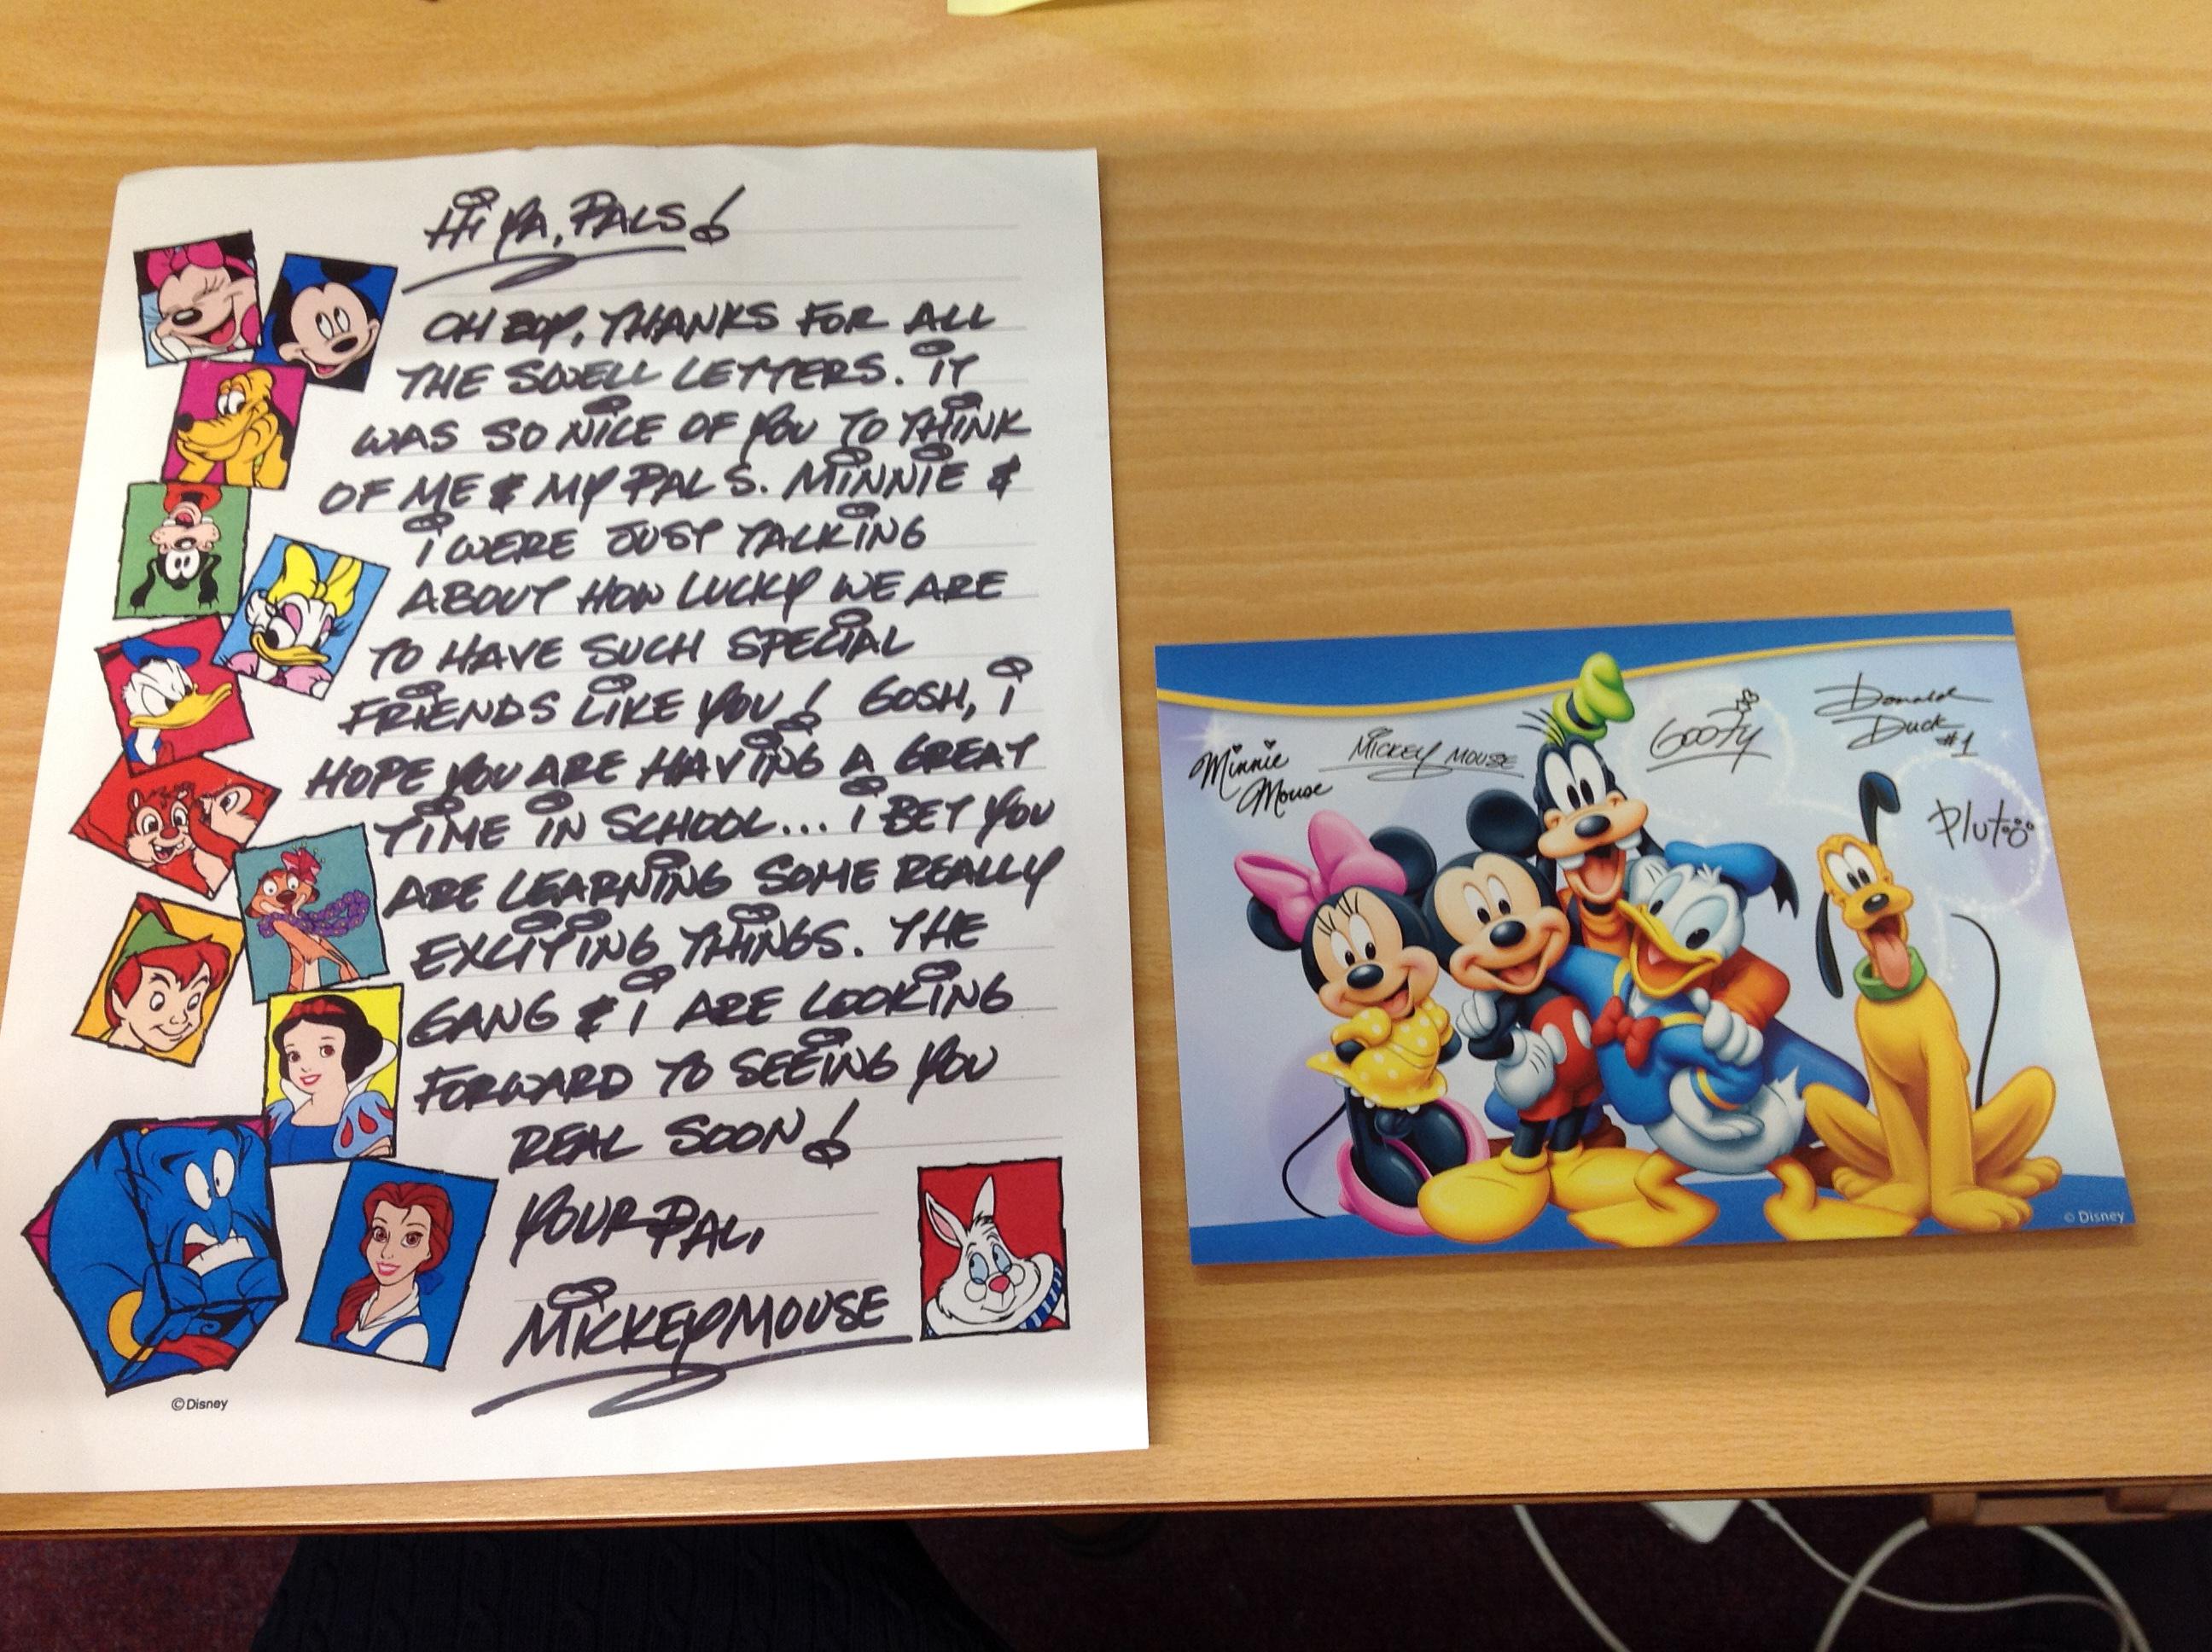 Hi YA, PALS!
OH BOY, THANKS FOR ALL
THE SWELL LETTERS. iT
WAS SO NiCE OF YOU TO THiNK
OF ME & MY PALS. MiNNiE &
i WERE JUST TALKiNG
ABOUT HOW LUCKY WE ARE
TO HAVE SUCH SPECiAL
FRiENDS LiKE YOU! GOSH, i
HOPE YOU ARE HAViNG A GREAT
TiME iN SCHOOL... i BET YOU
ARE LEARNiNG SOME REALLY
EXCiTiNG THiNGS. THE
GANG & i ARE LOOKiNG
FORWARD TO SEEiNG YOU
REAL SOON!
YOUR PAL,
MiCKEY MOUSE
©Disney
Minnie
Mouse
MiCKEY MOUSE
Goofy
Donald
Duck
#1
Pluto
© Disney